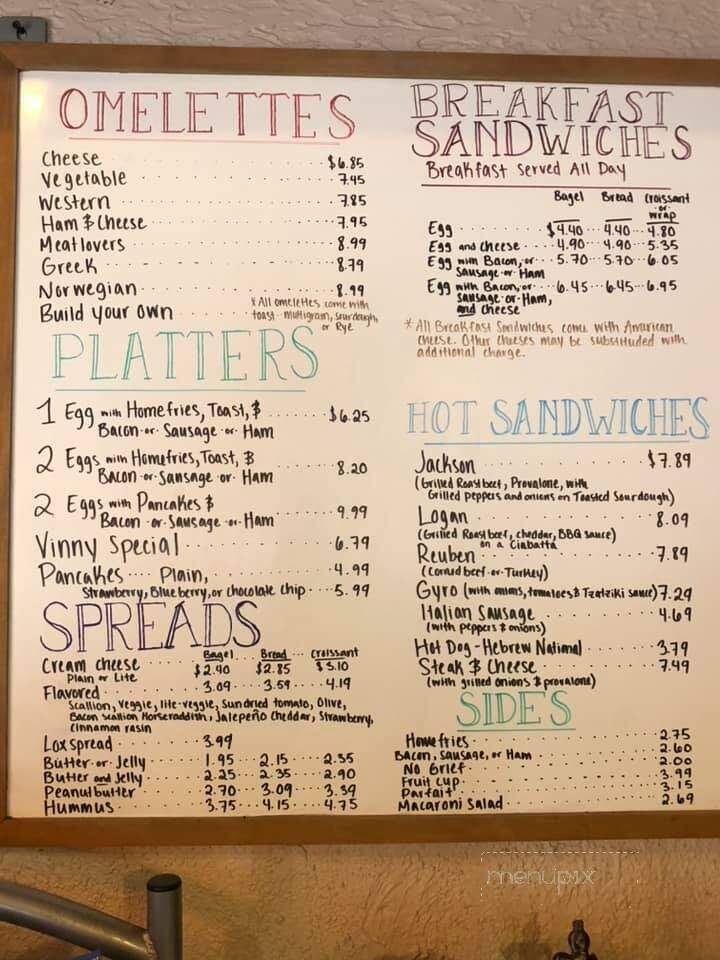 OMELETTES
Cheese $6.85
Vegetable 7.45
Western 7.85
Ham & Cheese 7.95
Meatlovers 8.99
Greek 8.79
Norwegian 8.99
Build your own
*All omelettes come with
toast - multigrain, sourdough,
or Rye
PLATTERS
1 Egg with Homefries, Toast, & $6.25
Bacon-or-Sausage-or-Ham
2 Eggs with Homefries, Toast, & 8.20
Bacon-or-Sausage-or-Ham
2 Eggs with Pancakes & 9.99
Bacon-or-Sausage-or-Ham
Vinny Special 6.79
Pancakes Plain, 4.99
Strawberry, Blueberry, or chocolate chip 5.99
SPREADS
Bagel Bread Croissant
Cream cheese $2.40 $2.85 $3.10
Plain or Lite
Flavored 3.09 3.59 4.19
Scallion, Veggie, lite-veggie, Sundried tomato, Olive,
Bacon scallion Horseraddish, Jalepeño Cheddar, Strawberry,
Cinnamon rasin
Lox spread 3.99
Butter-or-Jelly 1.95 2.15 2.35
Butter and Jelly 2.25 2.35 2.90
Peanutbutter 2.70 3.09 3.39
Hummus 3.75 4.15 4.75
BREAKFAST
SANDWICHES
Breakfast Served All Day
Bagel Bread Croissant
or
wrap
Egg $4.40 4.40 4.80
Egg and cheese 4.90 4.90 5.35
Egg with Bacon, or 5.70 5.70 6.05
Sausage-or-Ham
Egg with Bacon, or 6.45 6.45 6.95
Sausage-or-Ham,
and cheese
*All Breakfast Sandwiches come with American
cheese. Other cheeses may be substituted with
additional charge.
HOT SANDWICHES
Jackson $7.89
(Grilled Roast beef, Provalone, with
Grilled peppers and onions on Toasted Sourdough)
Logan 8.09
(Grilled Roast beef, cheddar, BBQ sauce)
on a Ciabatta
Reuben 7.89
(Corned beef-or-Turkey)
Gyro (with onions, tomatoes & Tzatziki sauce) 7.29
Italian Sausage 4.69
(with peppers & onions)
Hot Dog - Hebrew National 3.79
Steak & Cheese 7.49
(with grilled onions & provalone)
SIDES
Homefries 2.75
Bacon, Sausage, or Ham 2.60
No Brief 2.00
Fruit Cup 3.99
Parfait 3.15
Macaroni Salad 2.69
menupix